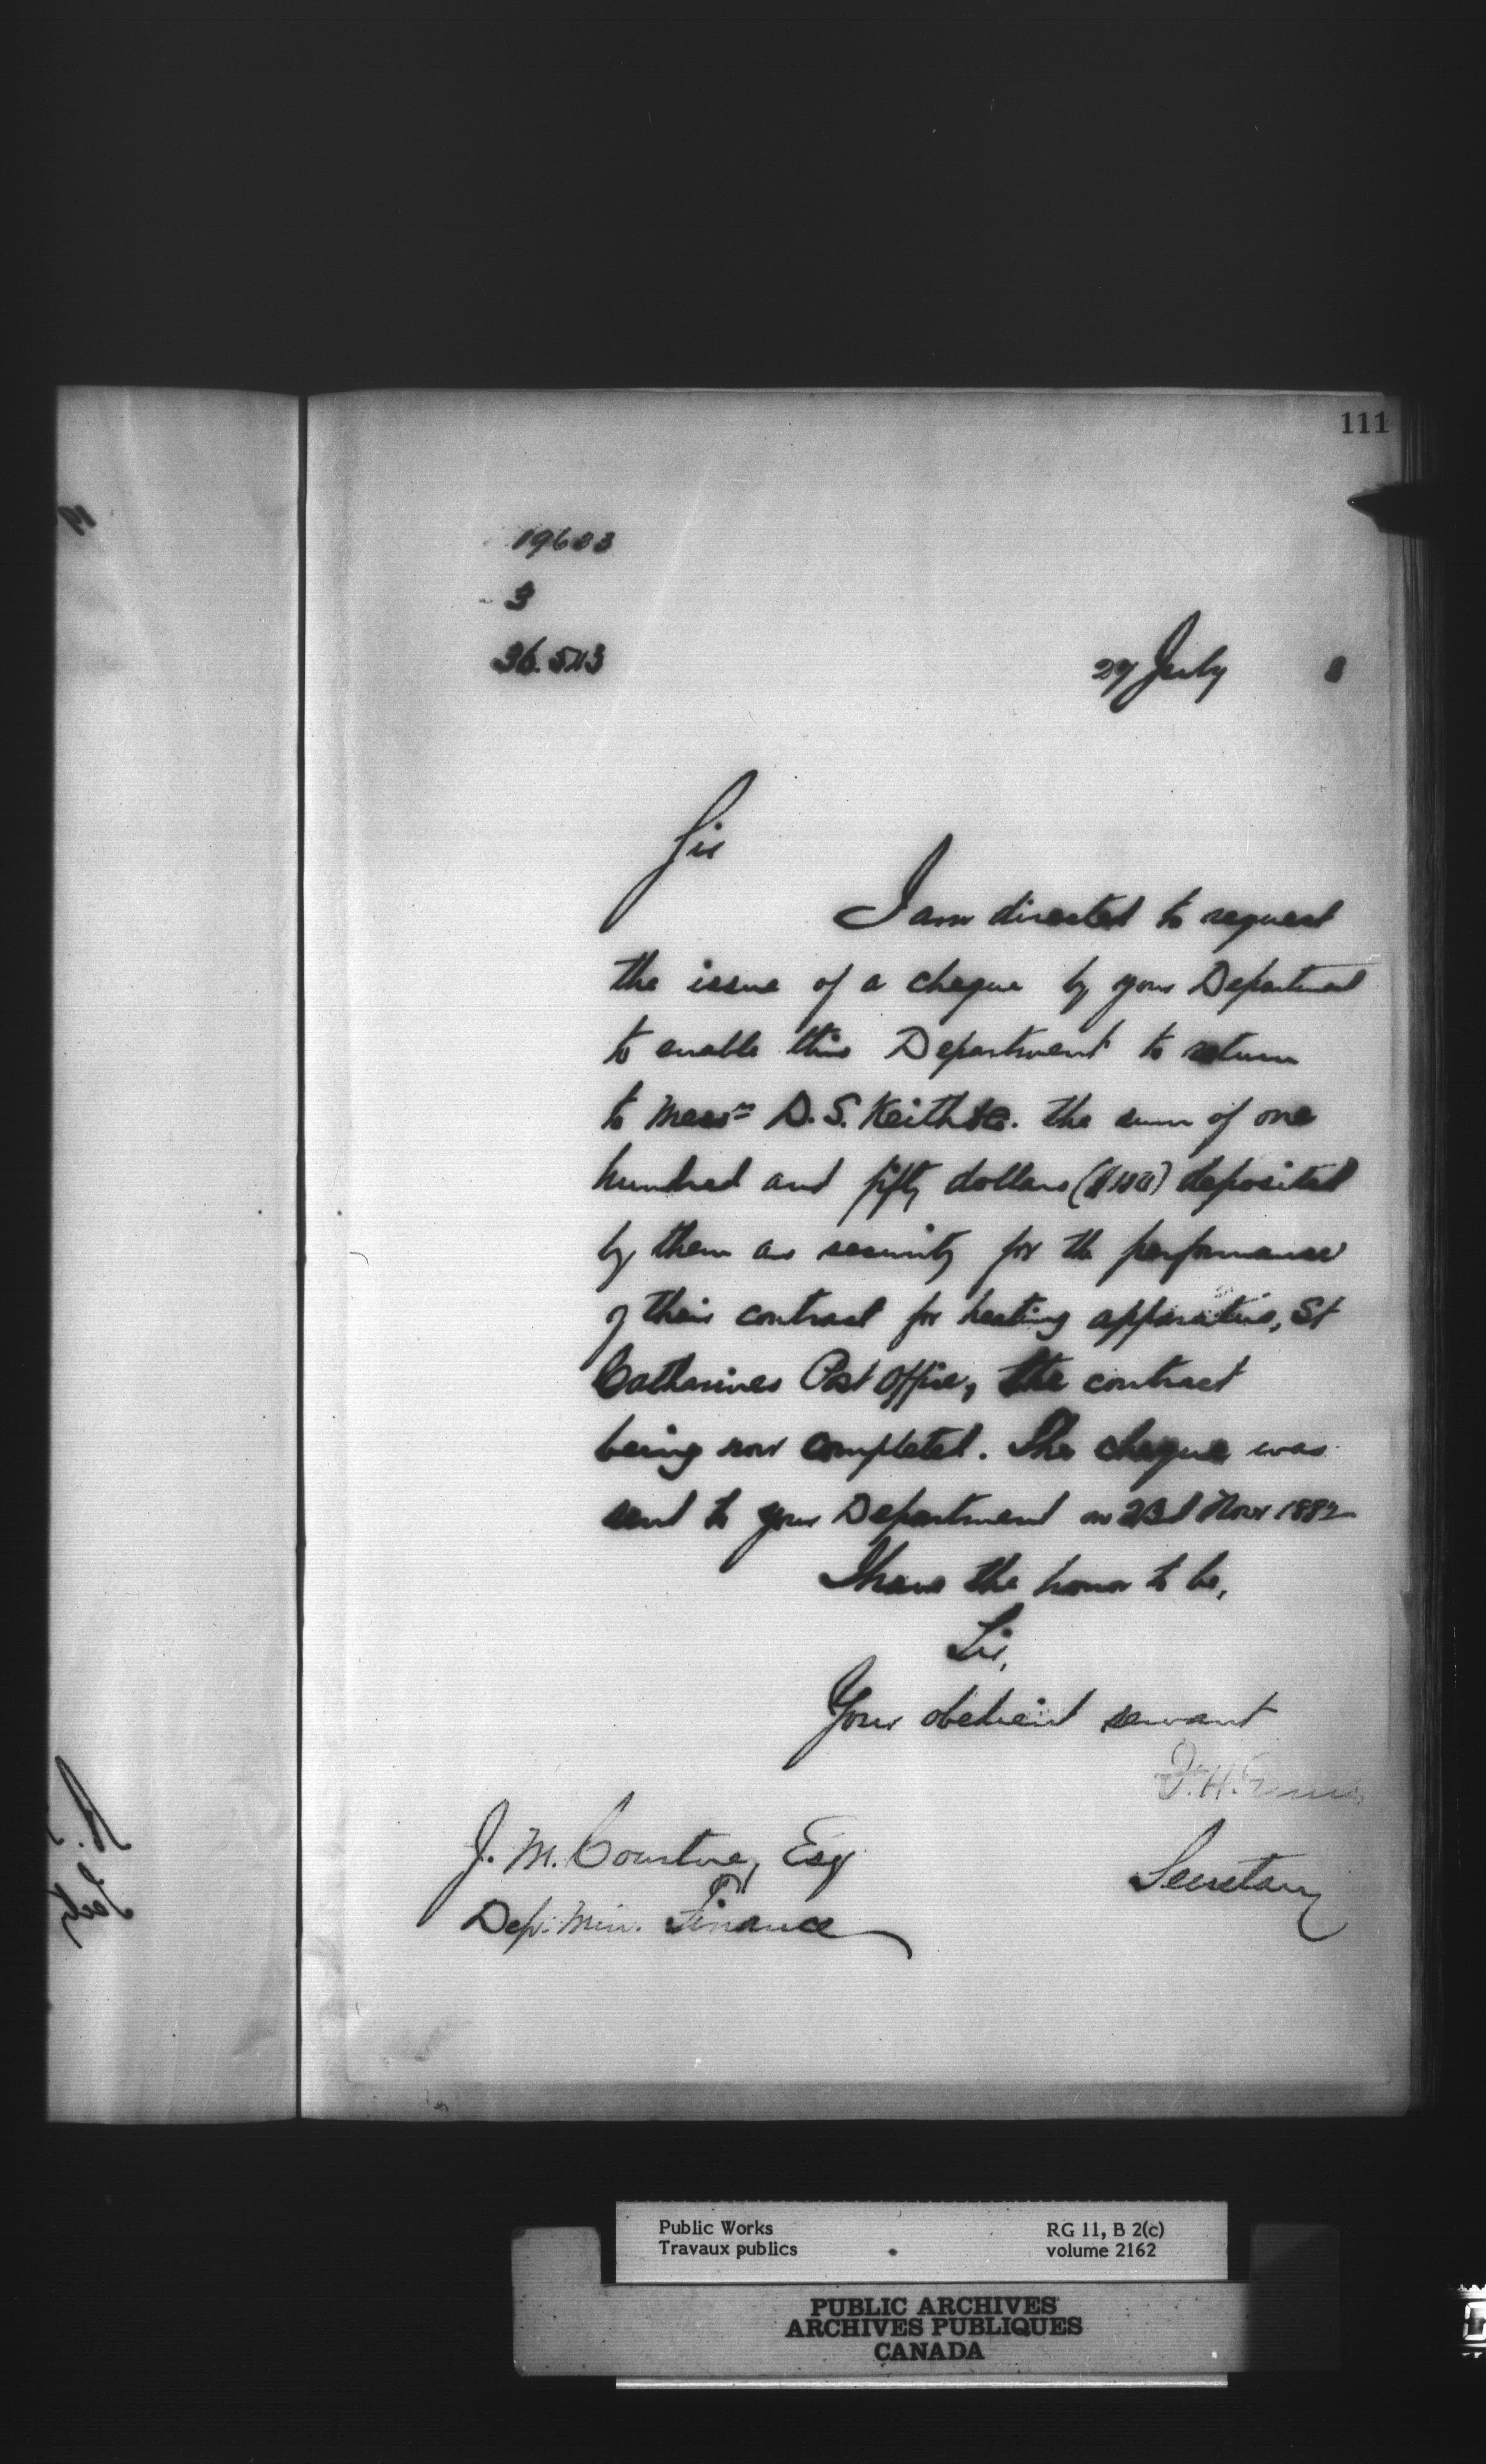 111
19633
3
36.513
27 July 8
Sir
I am directed to request
the issue of a cheque by your Department
to enable this Department to return
to Messrs D. S. Keith &Co. the sum of one
hundred and fifty dollars ($150) deposited
by them as security for the performance
of their contract for heating apparatus, St
Catharines Post Office, the contract
being now completed. The cheque was
sent to your Department on 23d Novr 1882
I have the honor to be,
Sir,
Your obedient servant
F. H. Ennis
J. M. Courtney, Esq
Secretary
Dep: Min. Finance
Public Works
Travaux publics
RG 11, B 2(c)
volume 2162
PUBLIC ARCHIVES
ARCHIVES PUBLIQUES
CANADA